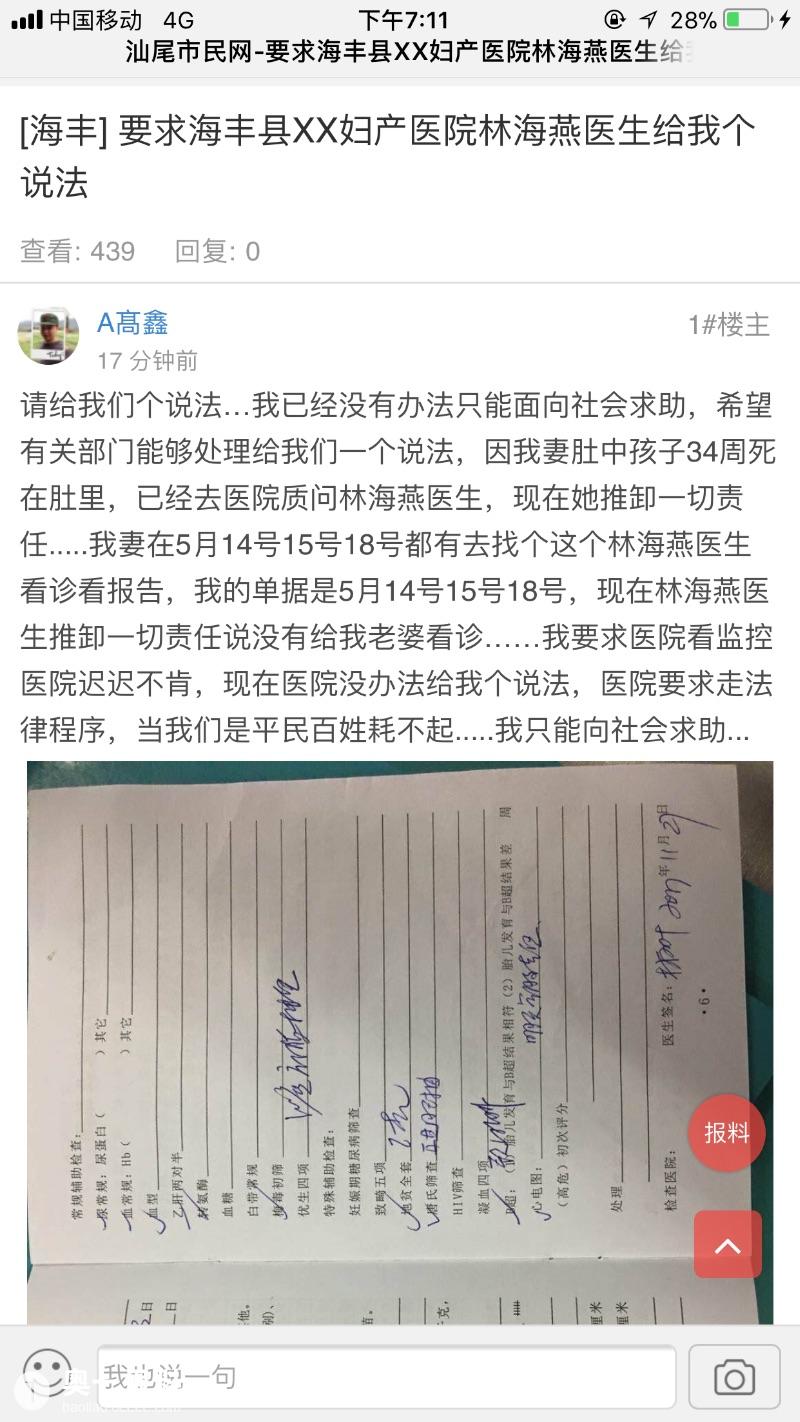 中国移动 4G 下午7:11 28%
汕尾市民网-要求海丰县XX妇产医院林海燕医生给
[海丰] 要求海丰县XX妇产医院林海燕医生给我个
说法
查看: 439 回复: 0
A髙鑫
1#楼主
17 分钟前
请给我们个说法…我已经没有办法只能面向社会求助，希望
有关部门能够处理给我们一个说法，因我妻肚中孩子34周死
在肚里，已经去医院质问林海燕医生，现在她推卸一切责
任.....我妻在5月14号15号18号都有去找个这个林海燕医生
看诊看报告，我的单据是5月14号15号18号，现在林海燕医
生推卸一切责任说没有给我老婆看诊……我要求医院看监控
医院迟迟不肯，现在医院没办法给我个说法，医院要求走法
律程序，当我们是平民百姓耗不起.....我只能向社会求助...
常规辅助检查:
尿常规: 尿蛋白( )其它
血常规: Hb( )其它
血型
乙肝两对半
转氨酶
血糖
白带常规
梅毒初筛
优生四项
特殊辅助检查:
妊娠期糖尿病筛查
致畸五项
地贫全套
唐氏筛查
HIV筛查
凝血四项
B超: 胎儿发育与B超结果相符 (2) 胎儿发育与B超结果差 周
心电图:
(高危) 初次评分
处理
检查医院: 医生签名: 年11月29日
·6·
报料
我也说一句